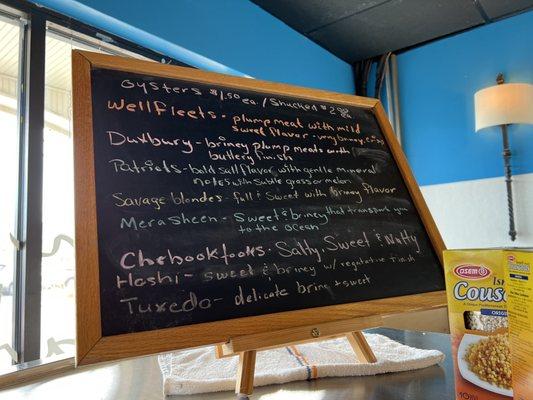 Oysters $1.50 ea / Shucked $2.00 ea
Wellfleets - plump meat with mild
sweet flavor - very briney, crisp
Duxbury - briney plump meats with
buttery finish
Patriots - bald salt flavor with gentle mineral
notes with subtle grass or melon
Savage blondes - full & sweet with briney flavor
Merasheen - Sweet & briney that transport you
to the ocean
Chebookfooks - Salty Sweet & Nutty
Hoshi - sweet & briney w/ regatative finish
Tuxedo - delicate brine + sweet
OSEM
Cous